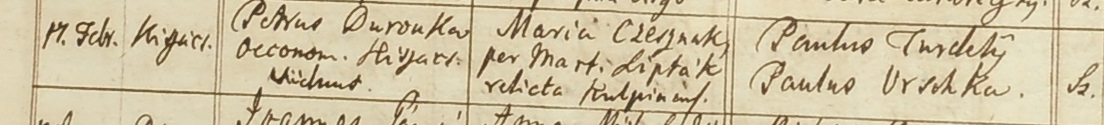 17. Febr.
Petrus Durouka
oeconom.
viduus.
Maria Czesznak,
per Mart. Lipták
relicta Kulpinens.
Paulus Turdety
Paulus Urschka.
Sz.
Joannes
Anna